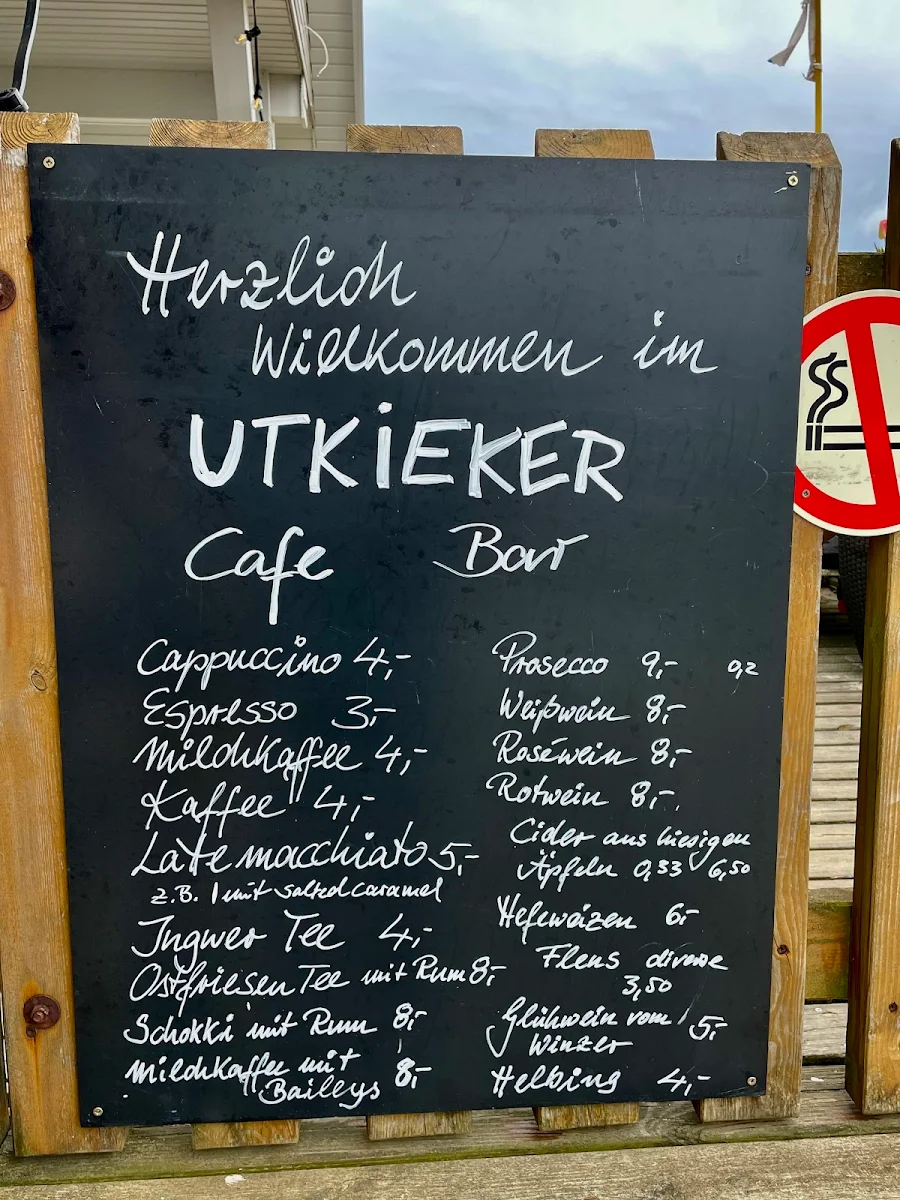 Herzlich
Willkommen im
UTKIEKER
Cafe Bar
Cappuccino 4,-
Espresso 3,-
Milchkaffee 4,-
Kaffee 4,-
Latemacchiato 5,-
z.B. mit salted caramel
Ingwer Tee 4,-
Ostfriesen Tee mit Rum 8,-
Schokki mit Rum 8,-
Milchkaffee mit
Baileys 8,-
Prosecco 9,- 0,2
Weißwein 8,-
Roséwein 8,-
Rotwein 8,-
Cider aus hiesigen
Äpfeln 0,33 6,50
Hefeweizen 6,-
Flens diverse
3,50
Glühwein vom 5,-
Winzer
Helbing 4,-